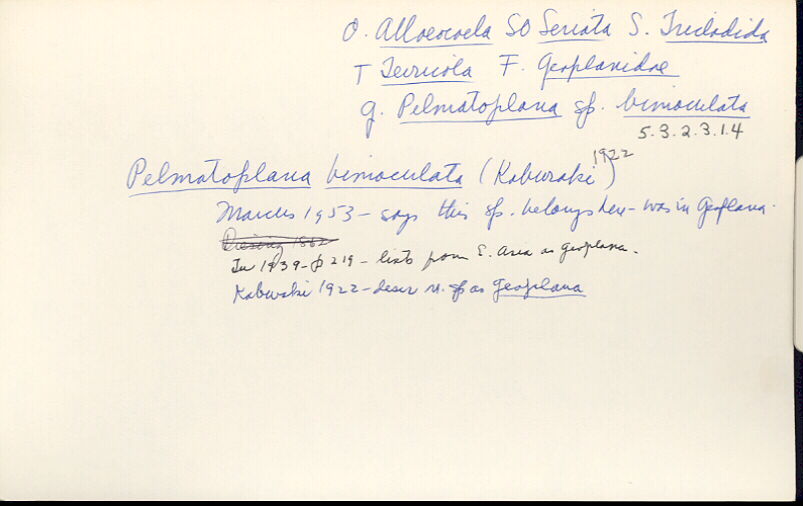 O. Alloeocoela SO Seriata S. Tricladida
T Terricola F. Geoplanidae
g. Pelmatoplana sp. bimaculata
5.3.2.3.1.4
Pelmatoplana bimaculata (Kaburaki 1922)
Marcus 1953 - says this sp. belongs here - was in Geoplana.
Diesing 1862
Fu 1939 - p 219 - lists from E. Asia as geoplana.
Kaburaki 1922 - descr n. sp as Geoplana